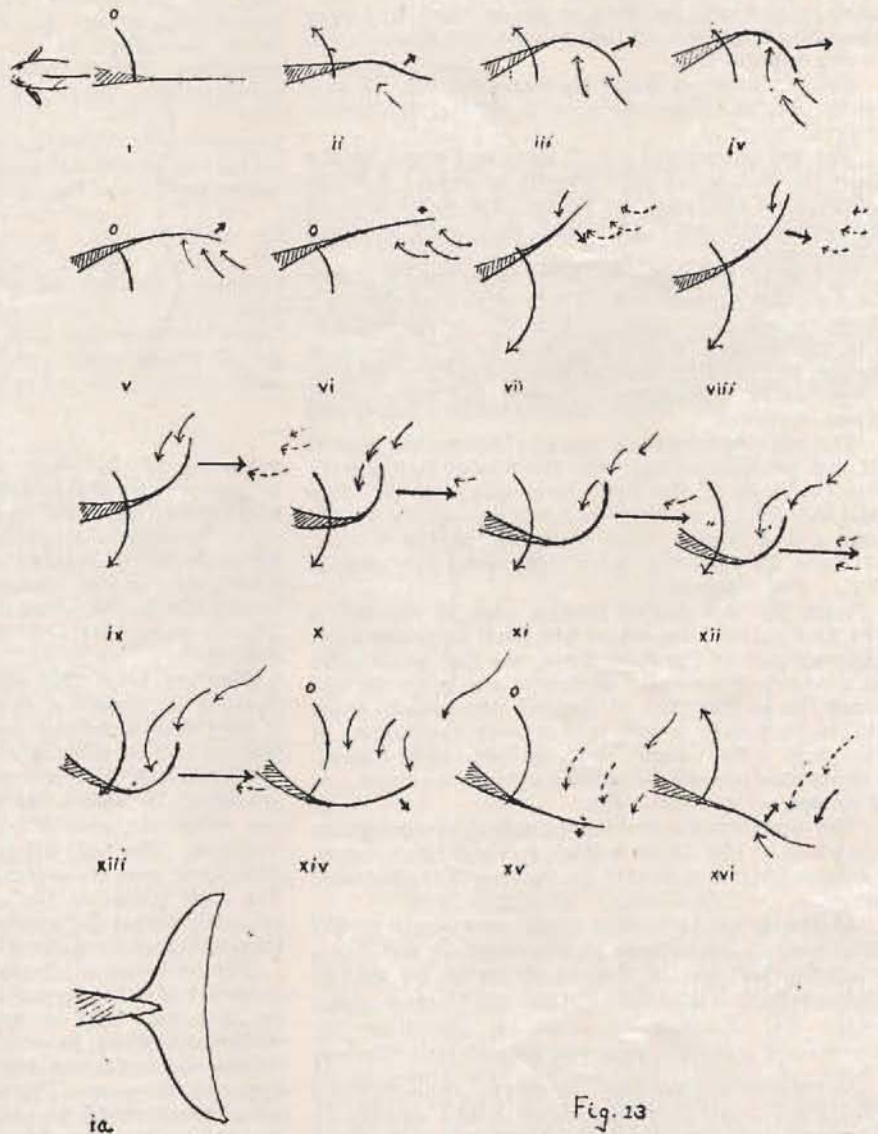 o
i ii iii iv
o o +
v vi vii viii
ix x xi xii
o o
xiii xiv xv xvi
+
ia
Fig. 13